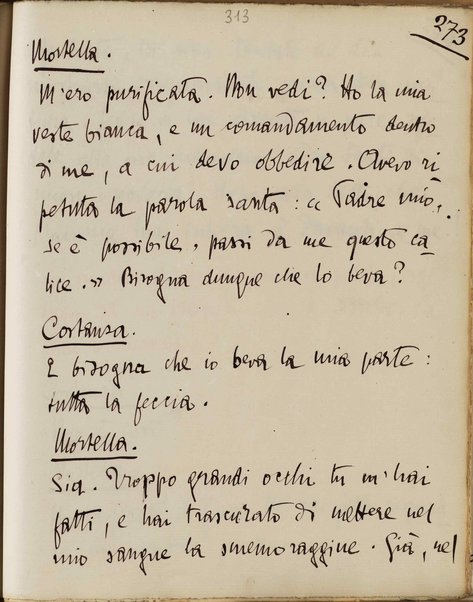 313
273
Mortella.
M'ero purificata. Non vedi? Ho la mia
veste bianca, e un comandamento dentro
di me, a cui devo obbedire. Avevo ri
petuta la parola santa: « Padre mio,
se è possibile, passi da me questo ca_
lice.» Bisogna dunque che lo beva?
Costanza.
E bisogna che io beva la mia parte:
tutta la feccia.
Mortella.
Sia. Troppo grandi occhi tu m'hai
fatti, e hai trascurato di mettere nel
mio sangue la smemoraggine. Già, nel